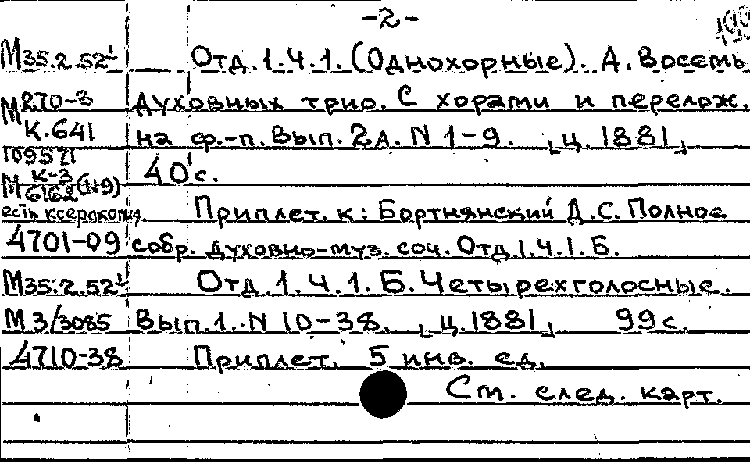 -2-
М35.2.52¹ Отд. 1. Ч. 1. (Однохорные). А. Восемь
М270-3 духовных трио. С хорами и перелож.
К.641 на ф.-п. Вып. 2А. N 1-9. [ц. 1881],
109571
М К-3 6162 (N9) 40 с.
есть ксерокопия Приплет. к: Бортнянский Д. С. Полное
4701-09 собр. духовно-муз. соч. Отд. 1. Ч. 1. Б.
М35.2.52¹ Отд. 1. Ч. 1. Б. Четырехголосные.
М 3/3085 Вып. 1. N 10-38. [ц. 1881], 99 с.
4710-38 Приплет. 5 инв. ед.
См. след. карт.